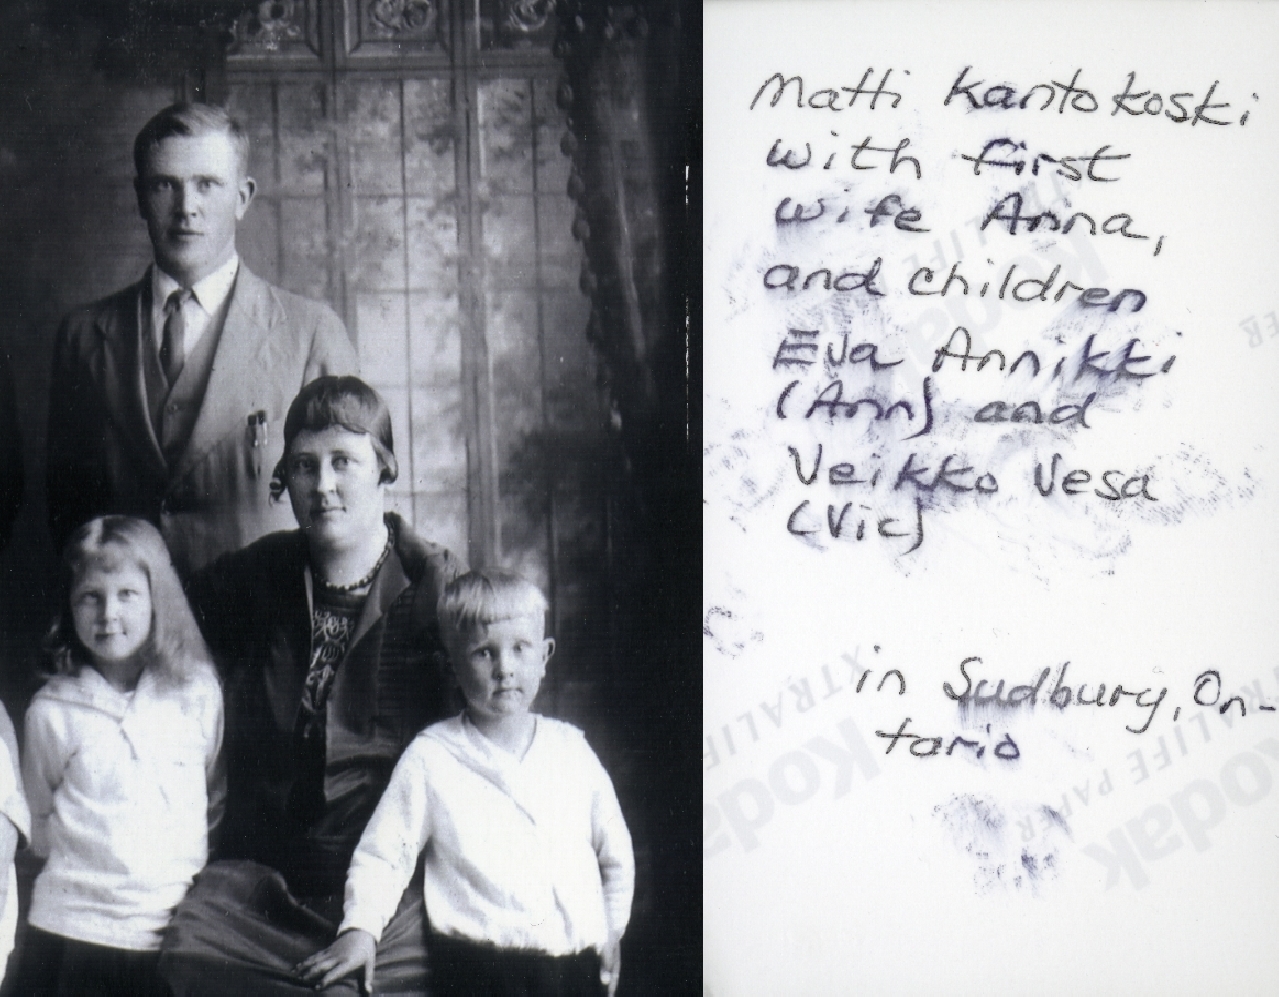 Matti Kantokoski
with first
wife Anna,
and children
Eva Annikki
(Ann) and
Veikko Vesa
(Vic)
in Sudbury, On-
tario
XTRALIFE PAPER
Kodak